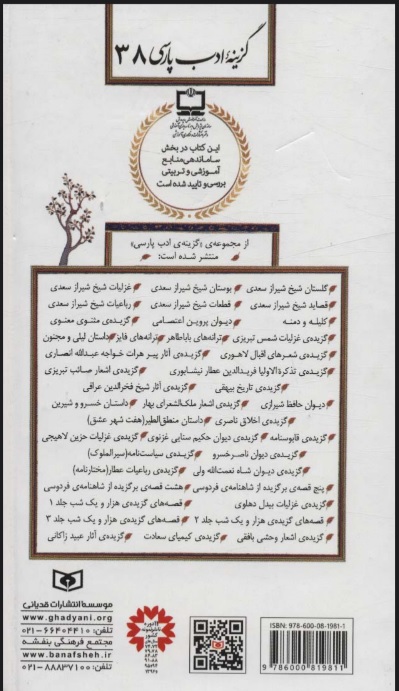 گزینهٔ ادب پارسی ۳۸
این کتاب در بخش
ساماندهی منابع
آموزشی و تربیتی
بررسی و تایید شده است
از مجموعه‌ی «گزینه‌ی ادب پارسی»
منتشر شده است:
گلستان شیخ شیراز سعدی بوستان شیخ شیراز سعدی غزلیات شیخ شیراز سعدی
قصاید شیخ شیراز سعدی قطعات شیخ شیراز سعدی رباعیات شیخ شیراز سعدی
کلیله و دمنه دیوان پروین اعتصامی گزیده‌ی مثنوی معنوی
گزیده‌ی غزلیات شمس تبریزی ترانه‌های باباطاهر ترانه‌های فایز داستان لیلی و مجنون
گزیده‌ی شعرهای اقبال لاهوری گزیده‌ی آثار پیر هرات خواجه عبدالله انصاری
گزیده‌ی تذکرةالاولیا فریدالدین عطار نیشابوری گزیده‌ی اشعار صائب تبریزی
گزیده‌ی تاریخ بیهقی گزیده‌ی آثار شیخ فخرالدین عراقی
دیوان حافظ شیرازی گزیده‌ی اشعار ملک‌الشعرای بهار داستان خسرو و شیرین
گزیده‌ی اخلاق ناصری داستان منطق‌الطیر(هفت شهر عشق)
گزیده‌ی قابوسنامه گزیده‌ی دیوان حکیم سنایی غزنوی گزیده‌ی غزلیات حزین لاهیجی
گزیده‌ی دیوان ناصرخسرو گزیده‌ی سیاست‌نامه(سیرالملوک)
گزیده‌ی دیوان شاه نعمت‌الله ولی گزیده‌ی رباعیات عطار(مختارنامه)
پنج قصه‌ی برگزیده از شاهنامه‌ی فردوسی هشت قصه‌ی برگزیده از شاهنامه‌ی فردوسی
گزیده‌ی غزلیات بیدل دهلوی قصه‌های گزیده‌ی هزار و یک شب جلد ۱
قصه‌های گزیده‌ی هزار و یک شب جلد ۲ قصه‌های گزیده‌ی هزار و یک شب جلد ۳
گزیده‌ی اشعار وحشی بافقی گزیده‌ی کیمیای سعادت گزیده‌ی آثار عبید زاکانی
موسسه انتشارات قدیانی
www.ghadyani.org
تلفن: ۶۶۴۰۴۴۱۰-۰۲۱
مجتمع فرهنگی بنفشه
www.banafsheh.ir
تلفن: ۸۸۸۳۷۱۰۰-۰۲۱
ISBN: 978-600-08-1981-1
9 786000 819811